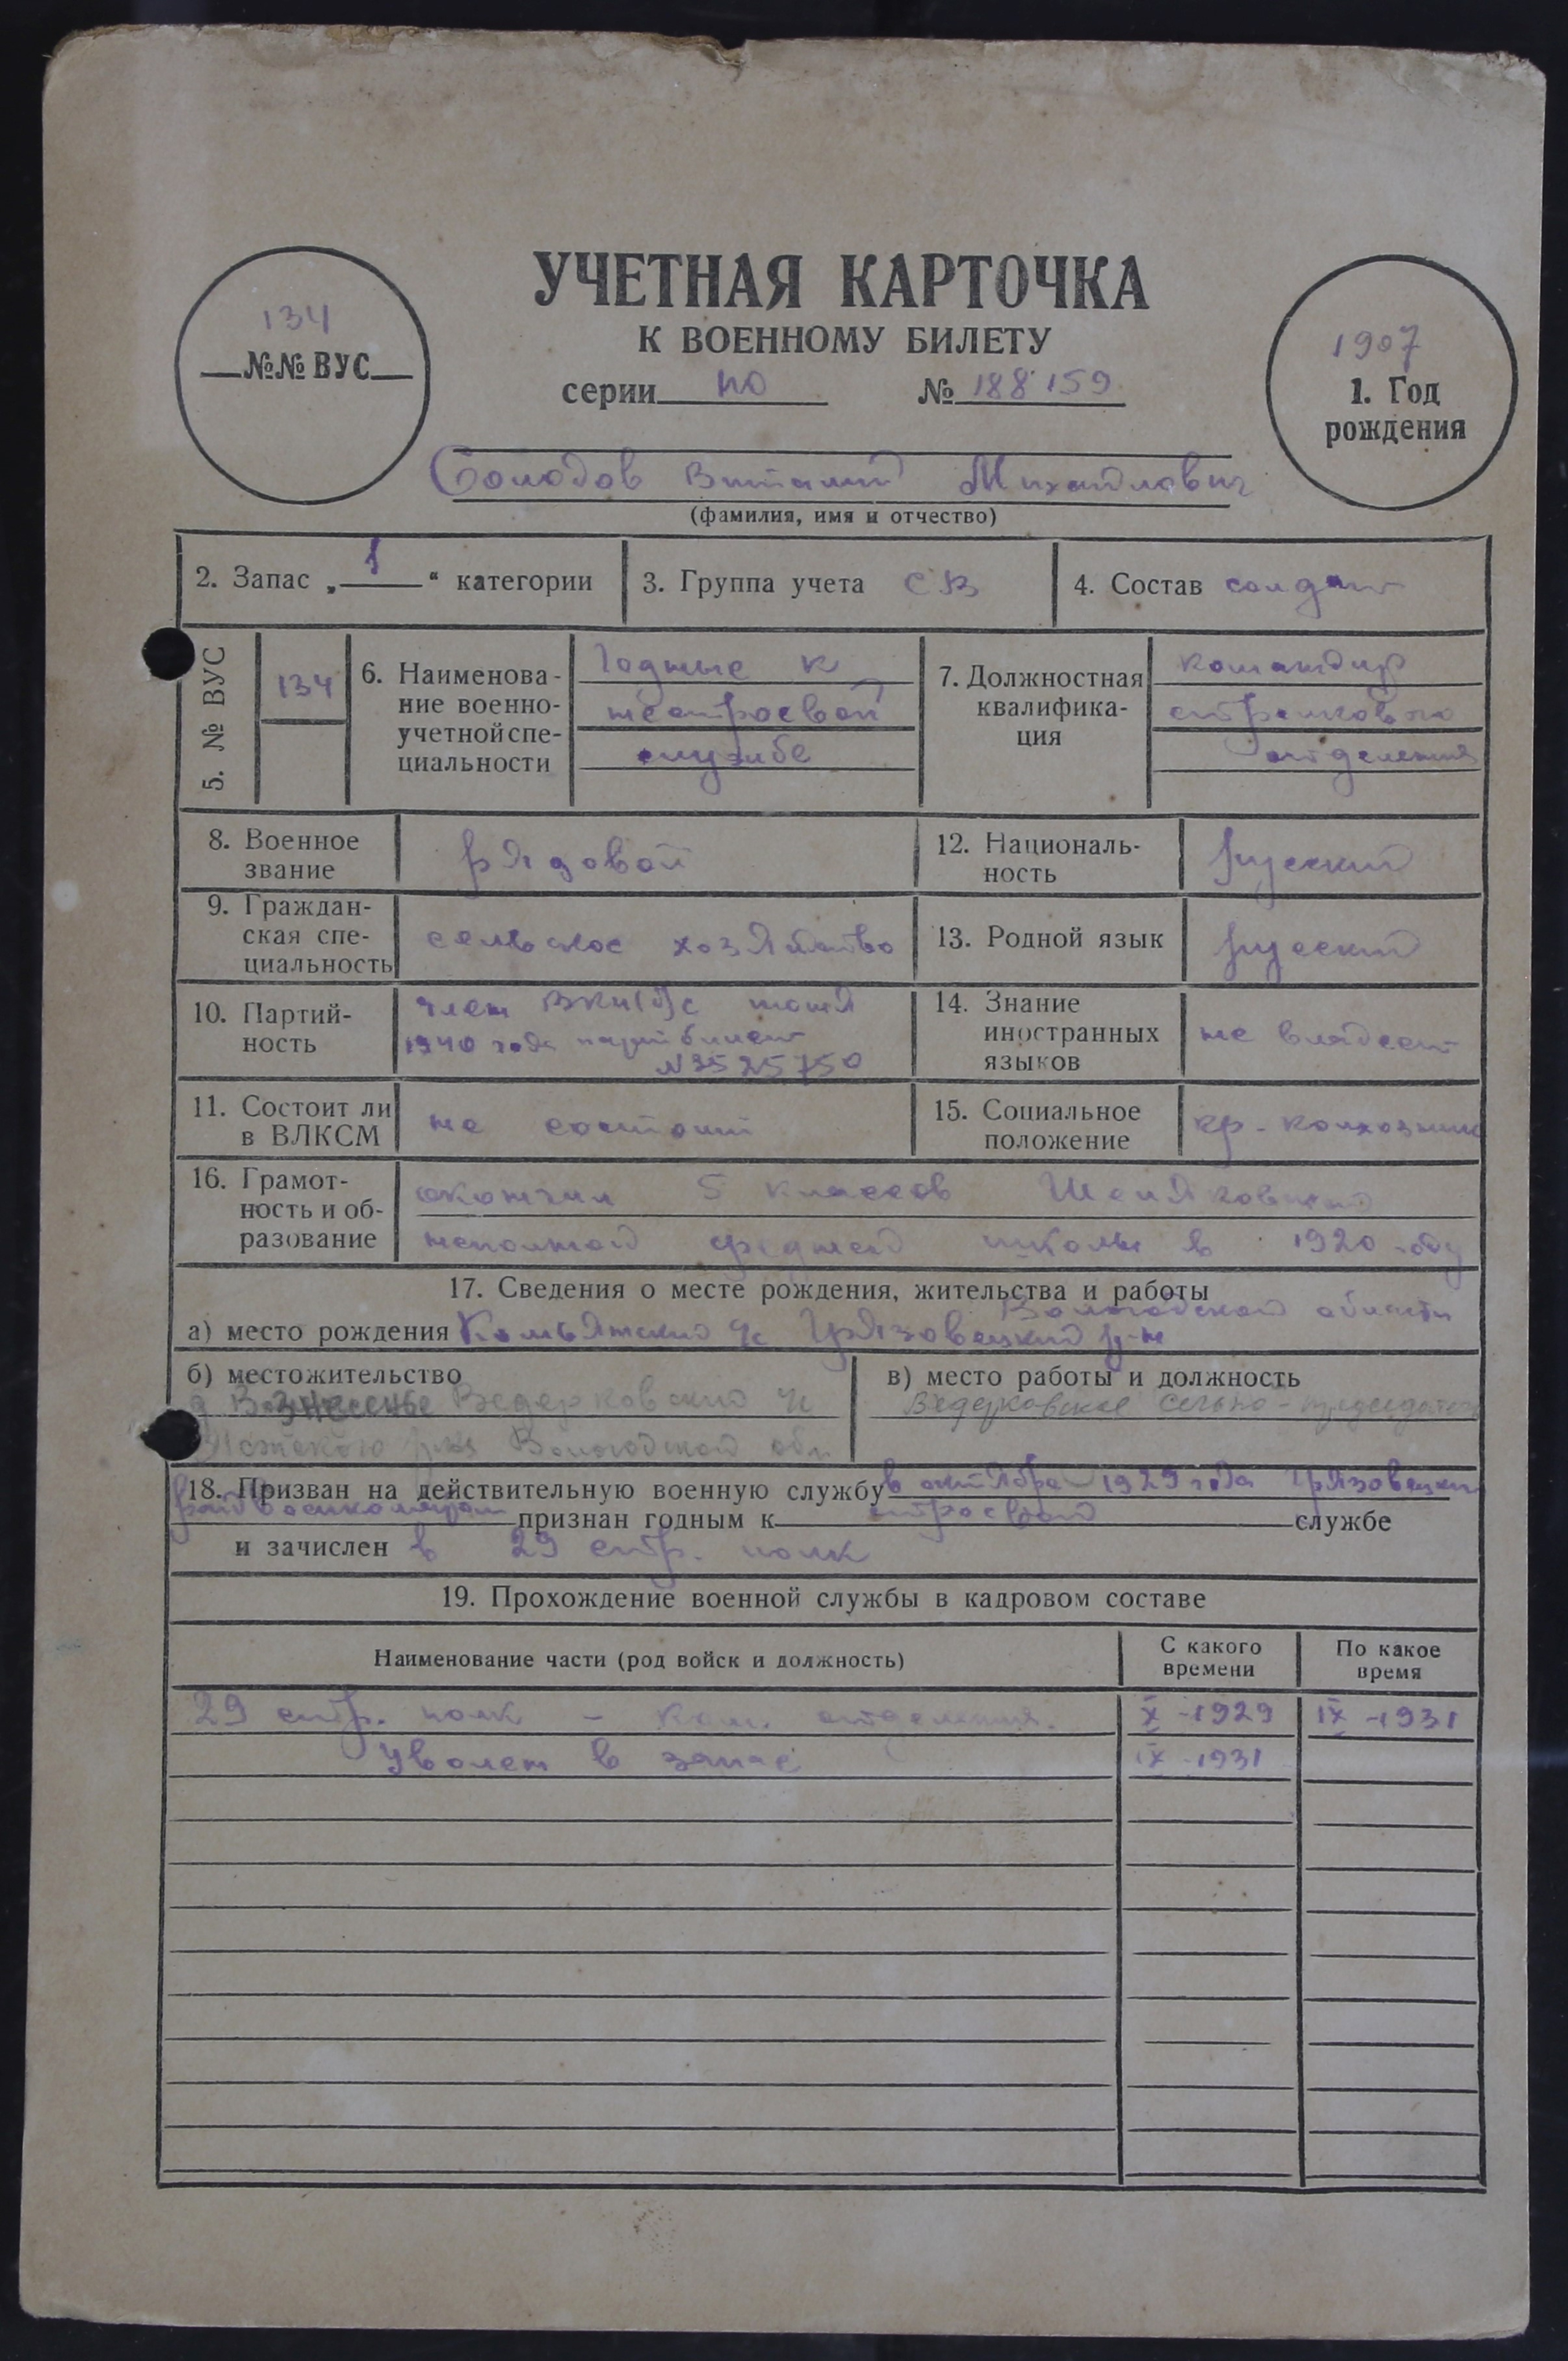 УЧЕТНАЯ КАРТОЧКА
К ВОЕННОМУ БИЛЕТУ
серии НО № 188159
134
№№ ВУС
1907
1. Год
рождения
Солодов Виталий Михайлович
(фамилия, имя и отчество)
2. Запас „1“ категории
3. Группа учета СВ
4. Состав солдат
5. № ВУС
134
6. Наименова-
ние военно-
учетной спе-
циальности
Годные к
нестроевой
службе
7. Должностная
квалифика-
ция
командир
стрелкового
отделения
8. Военное
звание
рядовой
12. Националь-
ность
русский
9. Граждан-
ская спе-
циальность
сельское хозяйство
13. Родной язык
русский
10. Партий-
ность
член ВКП(б) с
1940 года партбилет
№3525750
14. Знание
иностранных
языков
не владеет
11. Состоит ли
в ВЛКСМ
не состоит
15. Социальное
положение
кр-колхозник
16. Грамот-
ность и об-
разование
окончил 5 классов
неполной средней школы в 1920 году
17. Сведения о месте рождения, жительства и работы
Вологодской области
а) место рождения Комьянский с/с Грязовецкий р-н
б) местожительство
д Вознесенье Ведерковский с/с
р-на Вологодской обл.
в) место работы и должность
Ведерковское сельпо - председатель
18. Призван на действительную военную службу в октябре 1929 года Грязовецким
райвоенкоматом признан годным к строевой службе
и зачислен в 29 стр. полк
19. Прохождение военной службы в кадровом составе
Наименование части (род войск и должность)
С какого
времени
По какое
время
29 стр. полк - ком. отделения. X-1929 IX-1931
Уволен в запас IX-1931